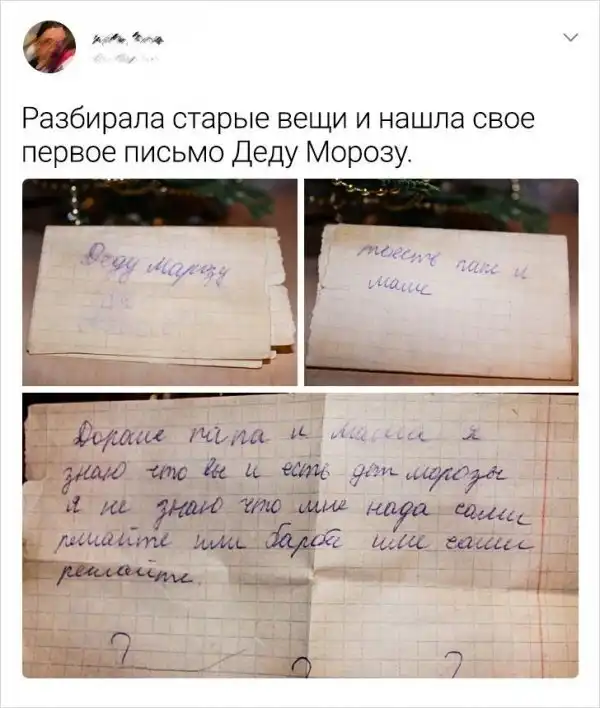 Разбирала старые вещи и нашла свое
первое письмо Деду Морозу.
Деду Марозу
папе и
маме
Дорогие папа и мама я
знаю что вы и есть дет морозы
я не знаю что мне нада сами
решайте или барби или сами
решайте.
? ? ?